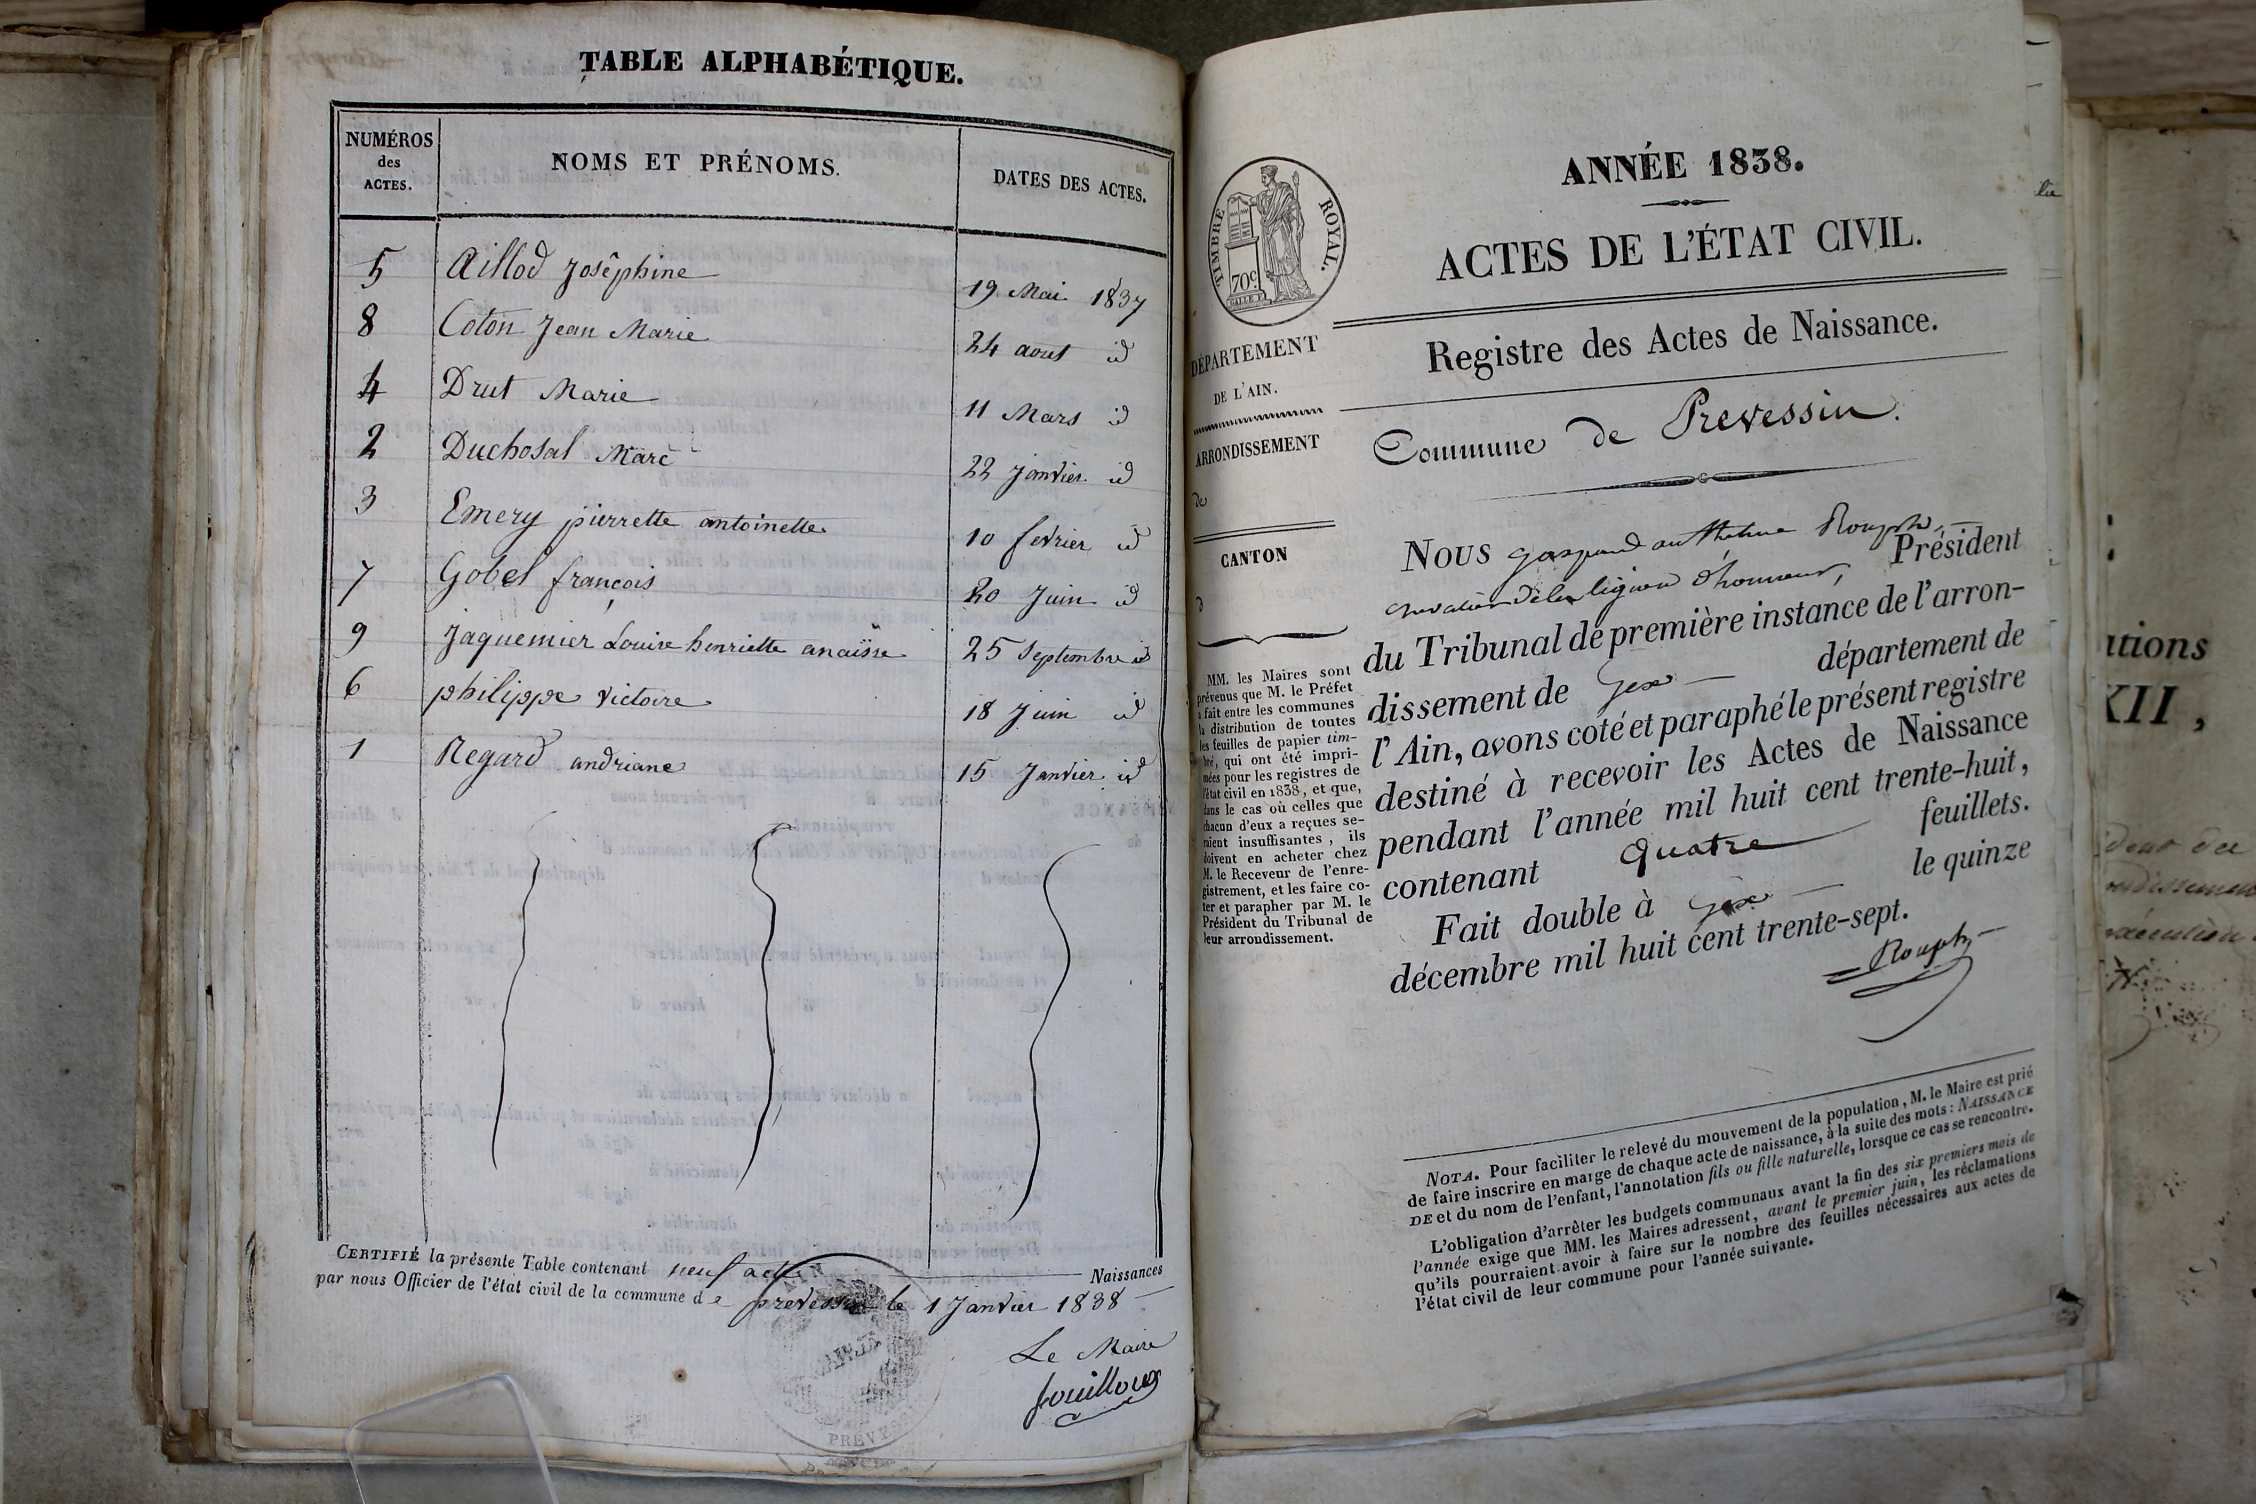 TABLE ALPHABÉTIQUE.
NUMÉROS des ACTES.
NOMS ET PRÉNOMS.
DATES DES ACTES.
5 Aillod Josêphine 19 Mai 1837
8 Coton Jean Marie 24 aout id
4 Drut Marie 11 Mars id
2 Duchosal Marc 22 janvier id
3 Emery pierrette antoinette 10 fevrier id
7 Gobel françois 20 Juin id
9 Jaquemier Louise henriette anaïsse 25 Septembre id
6 philippe victoire 18 Juin id
1 Regard andriane 15 Janvier id
CERTIFIÉ la présente Table contenant neuf actes Naissances
par nous Officier de l'état civil de la commune de prevessin le 1 Janvier 1838
Le Maire
fouilloux
ANNÉE 1838.
TIMBRE ROYAL.
70c
ACTES DE L'ÉTAT CIVIL.
Registre des Actes de Naissance.
DÉPARTEMENT
DE L'AIN.
ARRONDISSEMENT
de
CANTON
d
Commune de Prevessin.
MM. les Maires sont
prévenus que M. le Préfet
a fait entre les communes
la distribution de toutes
les feuilles de papier tim-
bré, qui ont été impri-
mées pour les registres de
l'état civil en 1838, et que,
dans le cas où celles que
chacun d'eux a reçues se-
roient insuffisantes, ils
doivent en acheter chez
M. le Receveur de l'enre-
gistrement, et les faire co-
ter et parapher par M. le
Président du Tribunal de
leur arrondissement.
NOUS gaspard anthelme Rouph
chevalier de la légion d'honneur, Président
du Tribunal de première instance de l'arron-
dissement de Gex département de
l'Ain, avons coté et paraphé le présent registre
destiné à recevoir les Actes de Naissance
pendant l'année mil huit cent trente-huit,
contenant quatre feuillets.
Fait double à Gex le quinze
décembre mil huit cent trente-sept.
Rouph
NOTA. Pour faciliter le relevé du mouvement de la population, M. le Maire est prié
de faire inscrire en marge de chaque acte de naissance, à la suite des mots : NAISSANCE
DE et du nom de l'enfant, l'annotation fils ou fille naturelle, lorsque ce cas se rencontre.
L'obligation d'arrêter les budgets communaux avant la fin des six premiers mois de
l'année exige que MM. les Maires adressent, avant le premier juin, les réclamations
qu'ils pourraient avoir à faire sur le nombre des feuilles nécessaires aux actes de
l'état civil de leur commune pour l'année suivante.
XII,